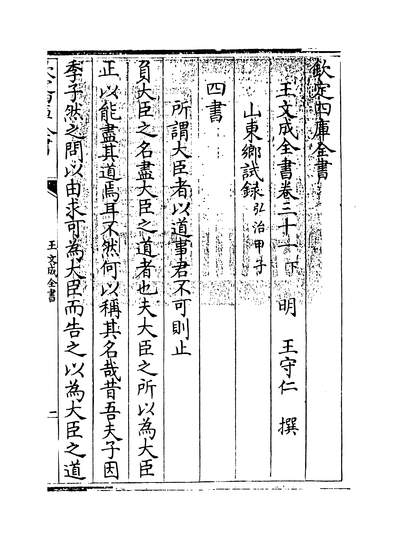 欽定四庫全書
王文成全書卷三十一下　明　王守仁　撰
山東鄉試錄弘治甲子
四書
所謂大臣者以道事君不可則止
負大臣之名盡大臣之道者也夫大臣之所以為大臣
正以能盡其道焉耳不然何以稱其名哉昔吾夫子因
季子然之問以由求可為大臣而告之以為大臣之道
王文成全書